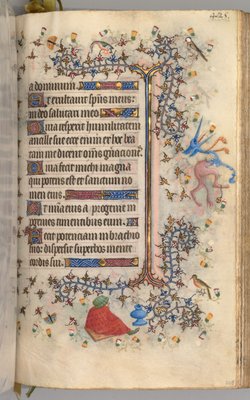 428
a dominum.
Et exultauit sp̄ns meus:
in deo salutari meo
Quia respexit humilitatem
ancille sue ecce enim ex hoc bea
tam me dicent om̄s gn̄acion̄e
Quia fecit michi magna
qui potens est et sanctum no
men eius.
Et mīa eius a progenie in
progenies timentibus eum.
Fecit potenciam in brachio
suo: dispersit superbos mente
cordis sui.